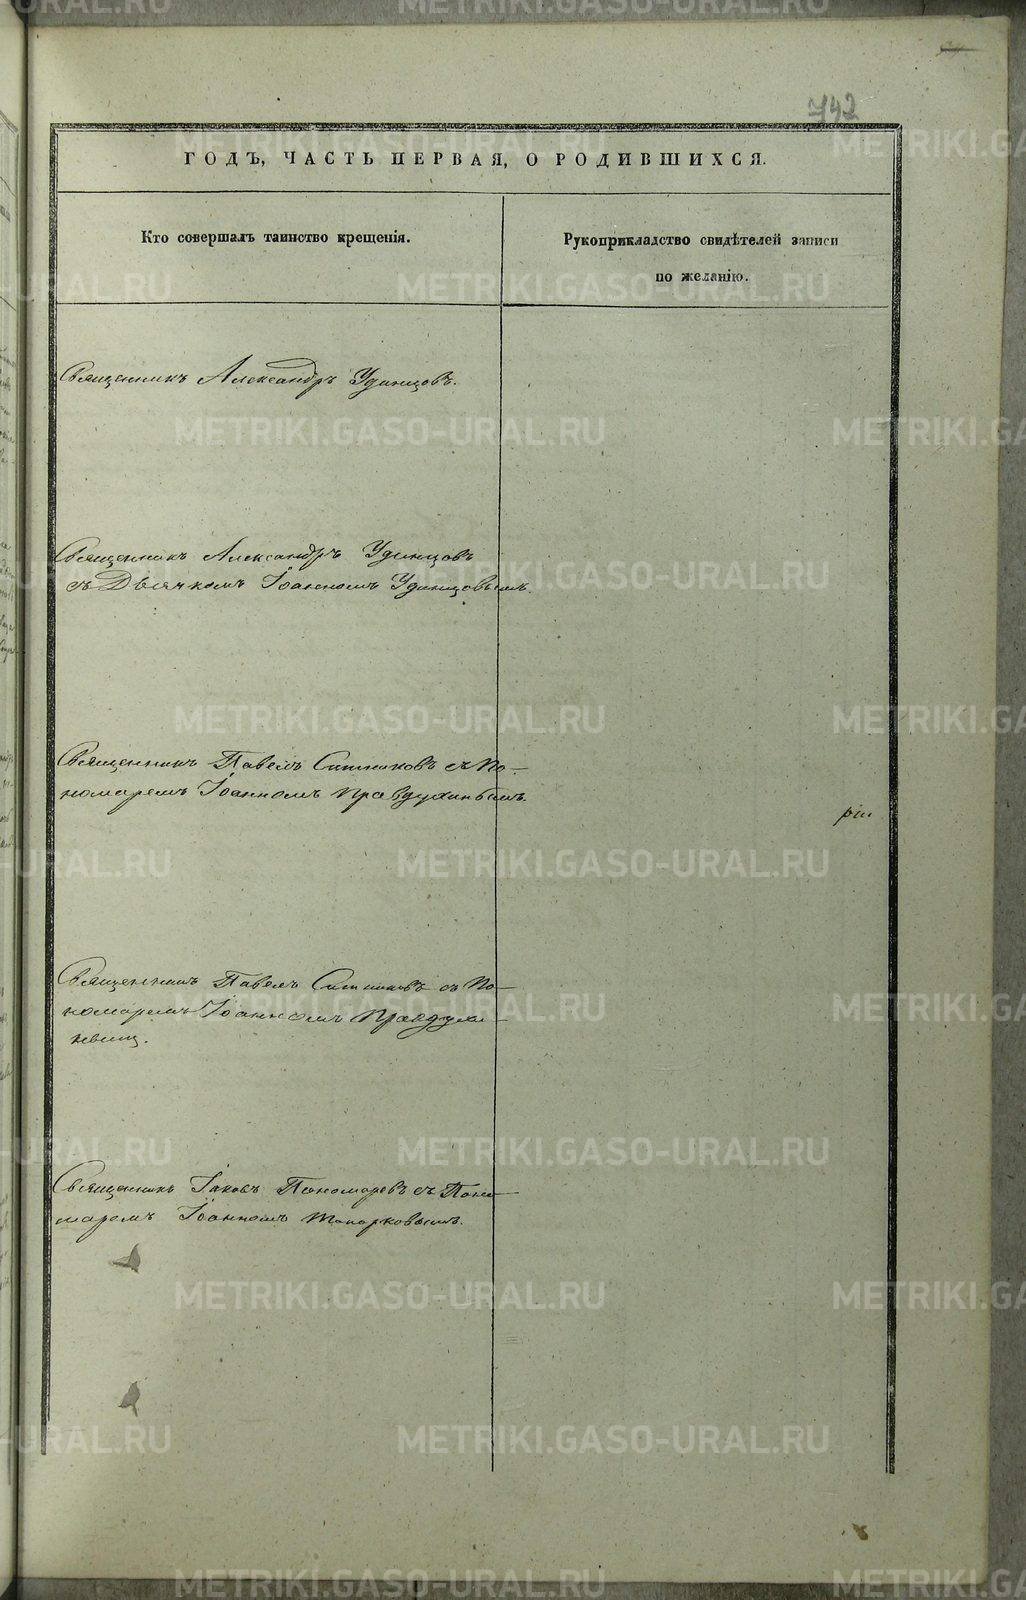 742
ГОДЪ, ЧАСТЬ ПЕРВАЯ, О РОДИВШИХСЯ.
Кто совершалъ таинство крещенія.
Рукоприкладство свидѣтелей записи
по желанію.
Священникъ Александръ Удинцовъ.
Священникъ Александръ Удинцовъ
съ Дьячкомъ Іоанномъ Удинцовымъ.
Священникъ Павелъ Ситниковъ съ По-
номаремъ Іоанномъ Правдухинымъ.
Священникъ Павелъ Ситниковъ съ По-
номаремъ Іоанномъ Правдухи-
нымъ.
Священникъ Іаковъ Пономаревъ съ Поно-
маремъ Іоанномъ Топорковымъ.
METRIKI.GASO-URAL.RU